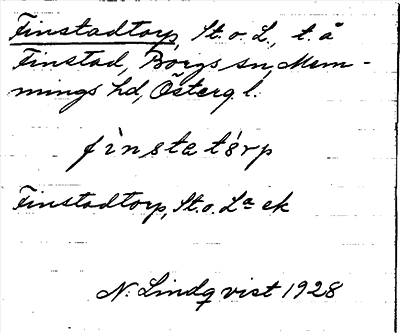 Finstadtorp, St. o. L., t. å
Finstad, Borgs sn, Mem-
mings hd, Östergl.
fìnstatórp
Finstadtorp, St. o. La ek
N. Lindqvist 1928